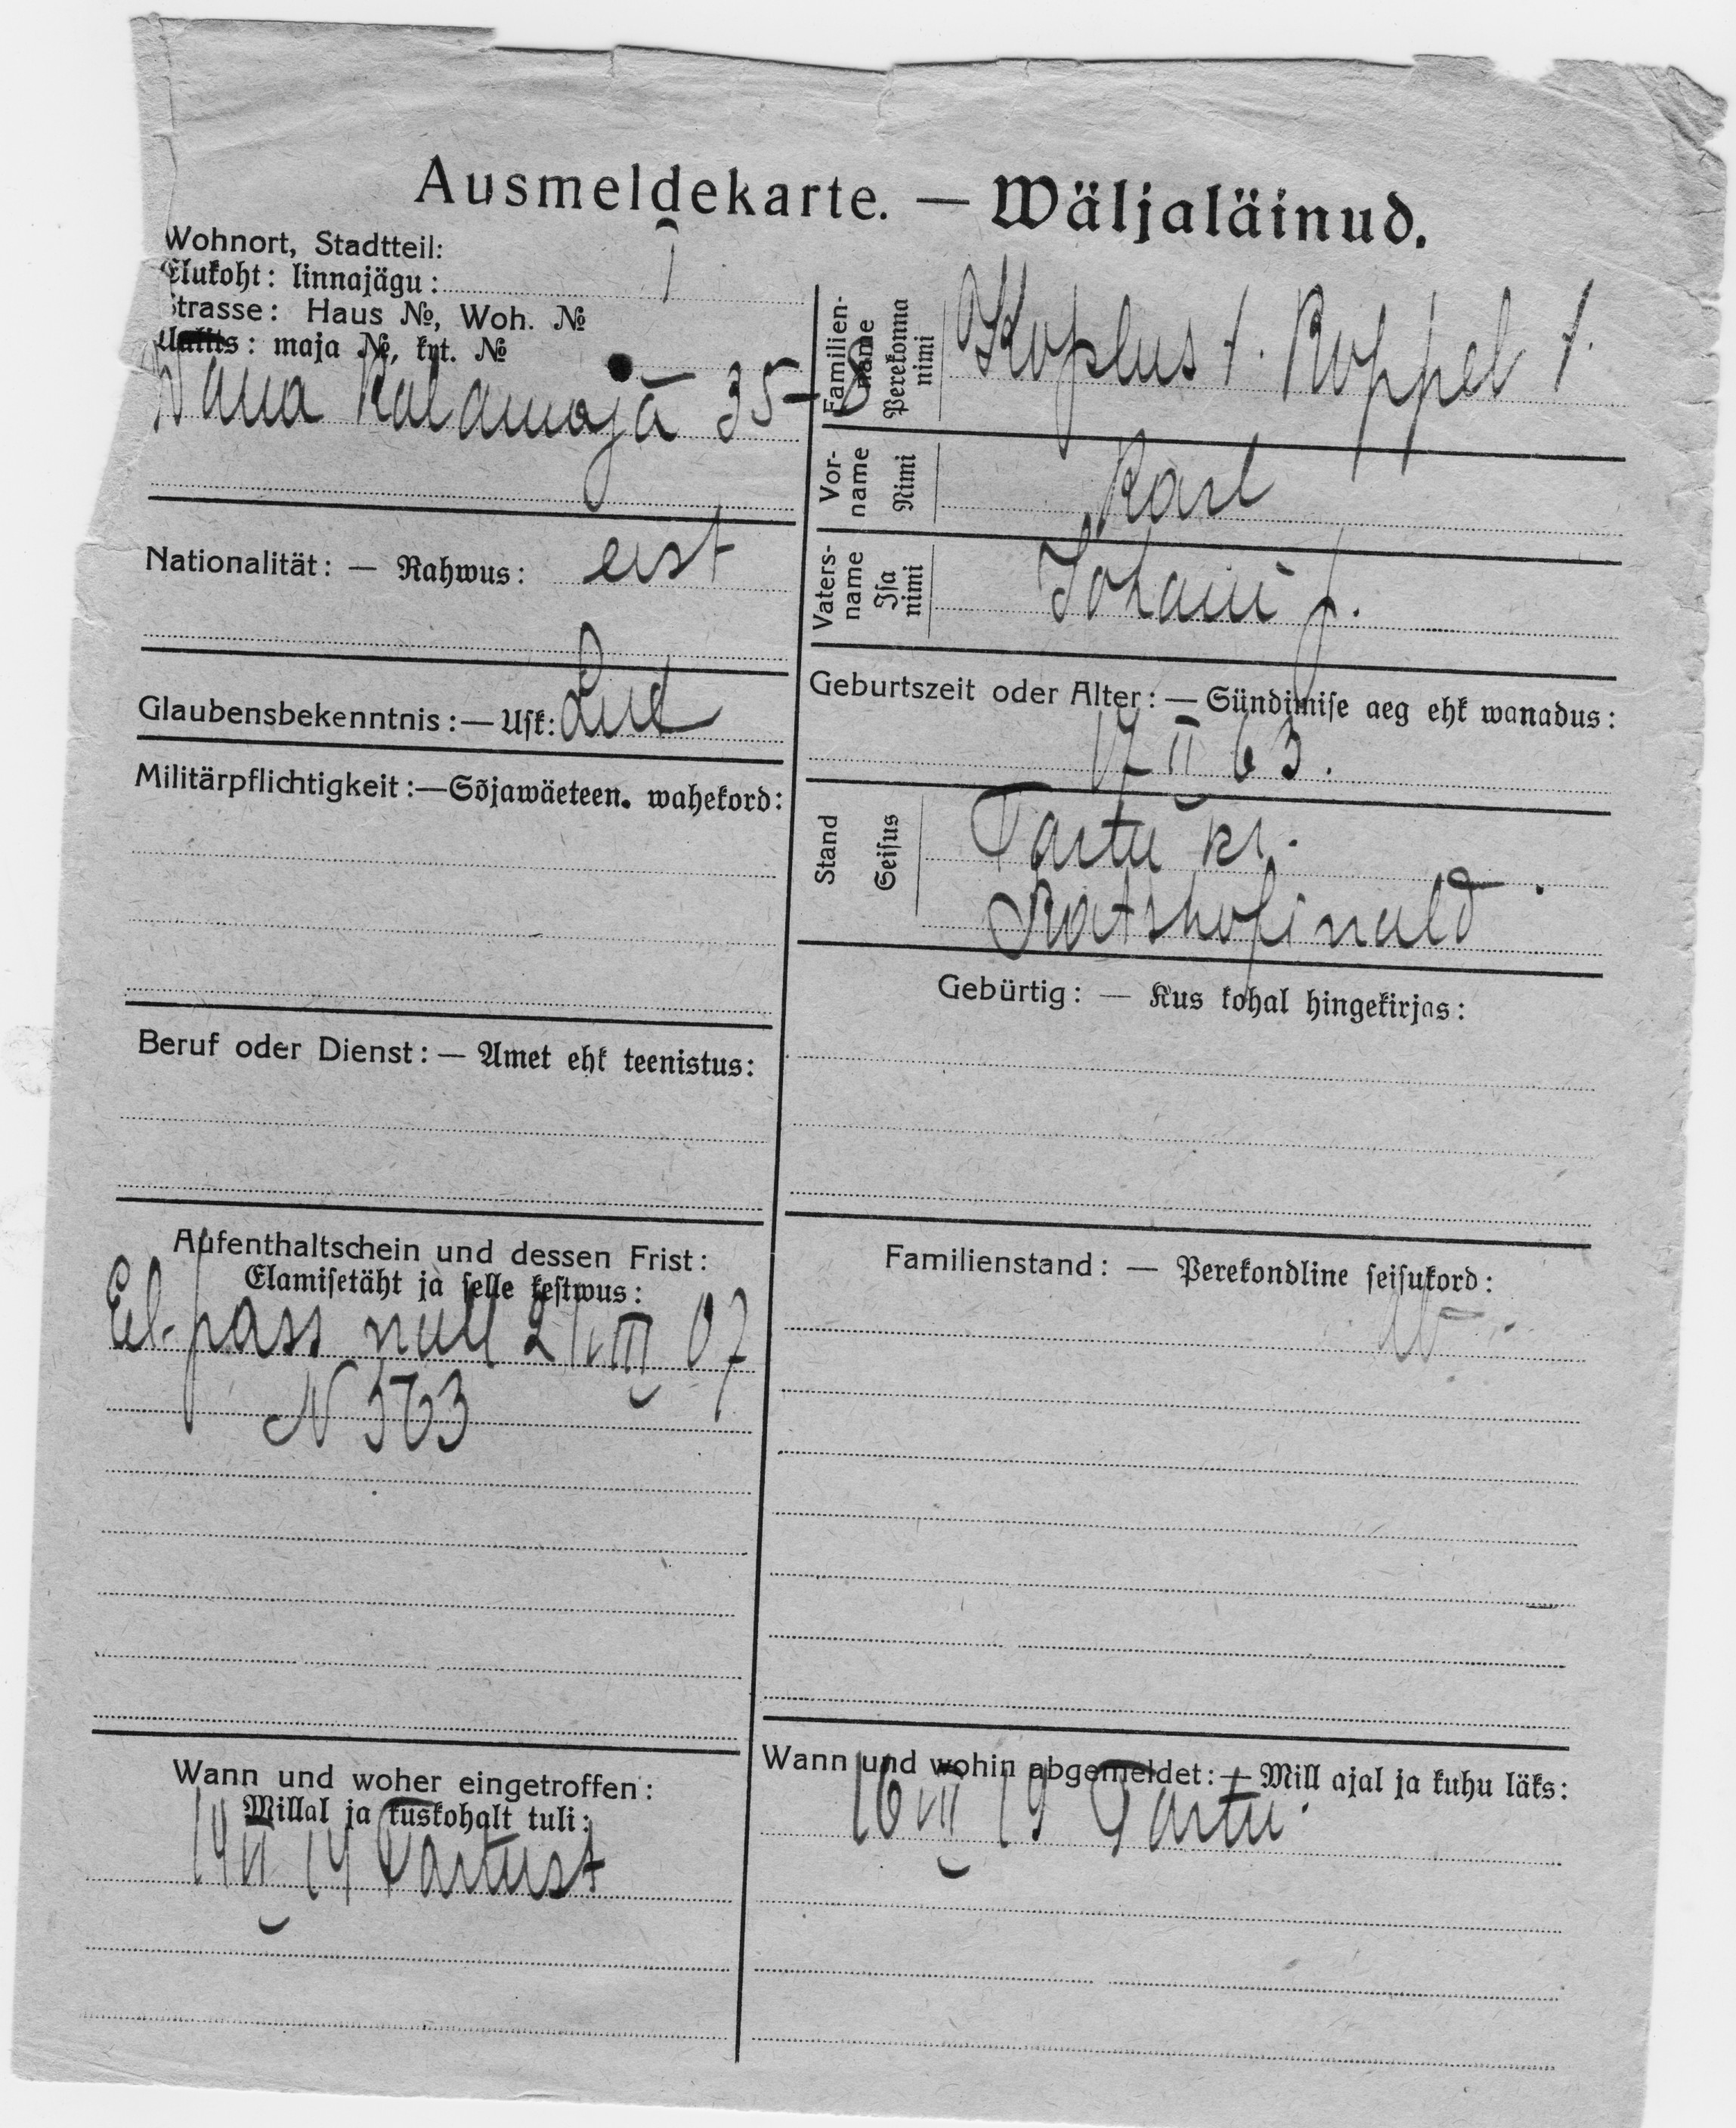 Ausmeldekarte. — Wäljaläinud.
Wohnort, Stadtteil: I
Elukoht: linnajägu:
Strasse: Haus №, Woh. №
Uulits: maja №, krt. №
Wana Kalamaja 35-8
Nationalität: — Rahwus: eest
Glaubensbekenntnis: — Usk: Lut
Militärpflichtigkeit: — Sõjawäeteen. wahekord:
Beruf oder Dienst: — Amet ehk teenistus:
Aufenthaltschein und dessen Frist:
Elamisetäht ja selle kestwus:
El. pass null III 07
N 563
Wann und woher eingetroffen:
Millal ja kuskohalt tuli:
14 VI 14 Tartust
Familien-
name
Perekonna
nimi
Koplus f. Koppel f.
Vor-
name
Nimi
Karl
Vaters-
name
Isa
nimi
Johani f.
Geburtszeit oder Alter: — Sündimise aeg ehk wanadus:
17 II 63.
Stand
Seisus
Tartu kr.
Ratshofi wald
Gebürtig: — Kus kohal hingekirjas:
Familienstand: — Perekondline seisukord:
Wann und wohin abgemeldet: — Mill ajal ja kuhu läks:
16 VII 19 Tartu.